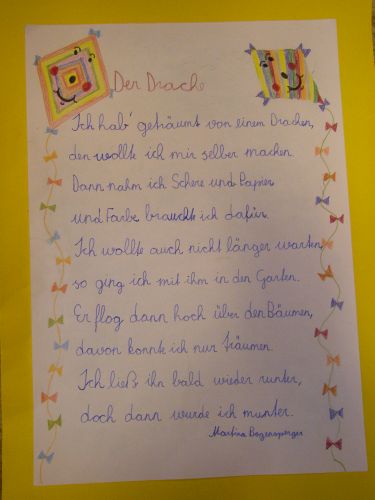 Der Drache
Ich hab' geträumt von einem Drachen,
den wollte ich mir selber machen.
Dann nahm ich Schere und Papier
und Farbe brauchte ich dafür.
Ich wollte auch nicht länger warten,
so ging ich mit ihm in den Garten.
Er flog dann hoch über den Bäumen,
davon konnte ich nur träumen.
Ich ließ ihn bald wieder runter,
doch dann wurde ich munter.
Martina Bogensperger